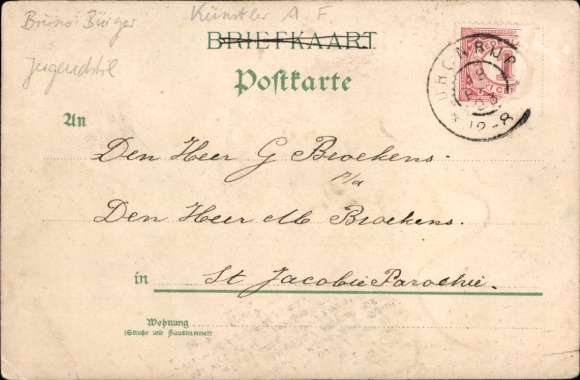 Bruno Bürger Künstler A. F
Jugendstil
BRIEFKAART.
Postkarte
An
Den Heer G Broekens.
p/a
Den Heer M Broekens.
in St Jacobie Parochie.
Wohnung
(Straße und Hausnummer)
DRONRIJP
12-8